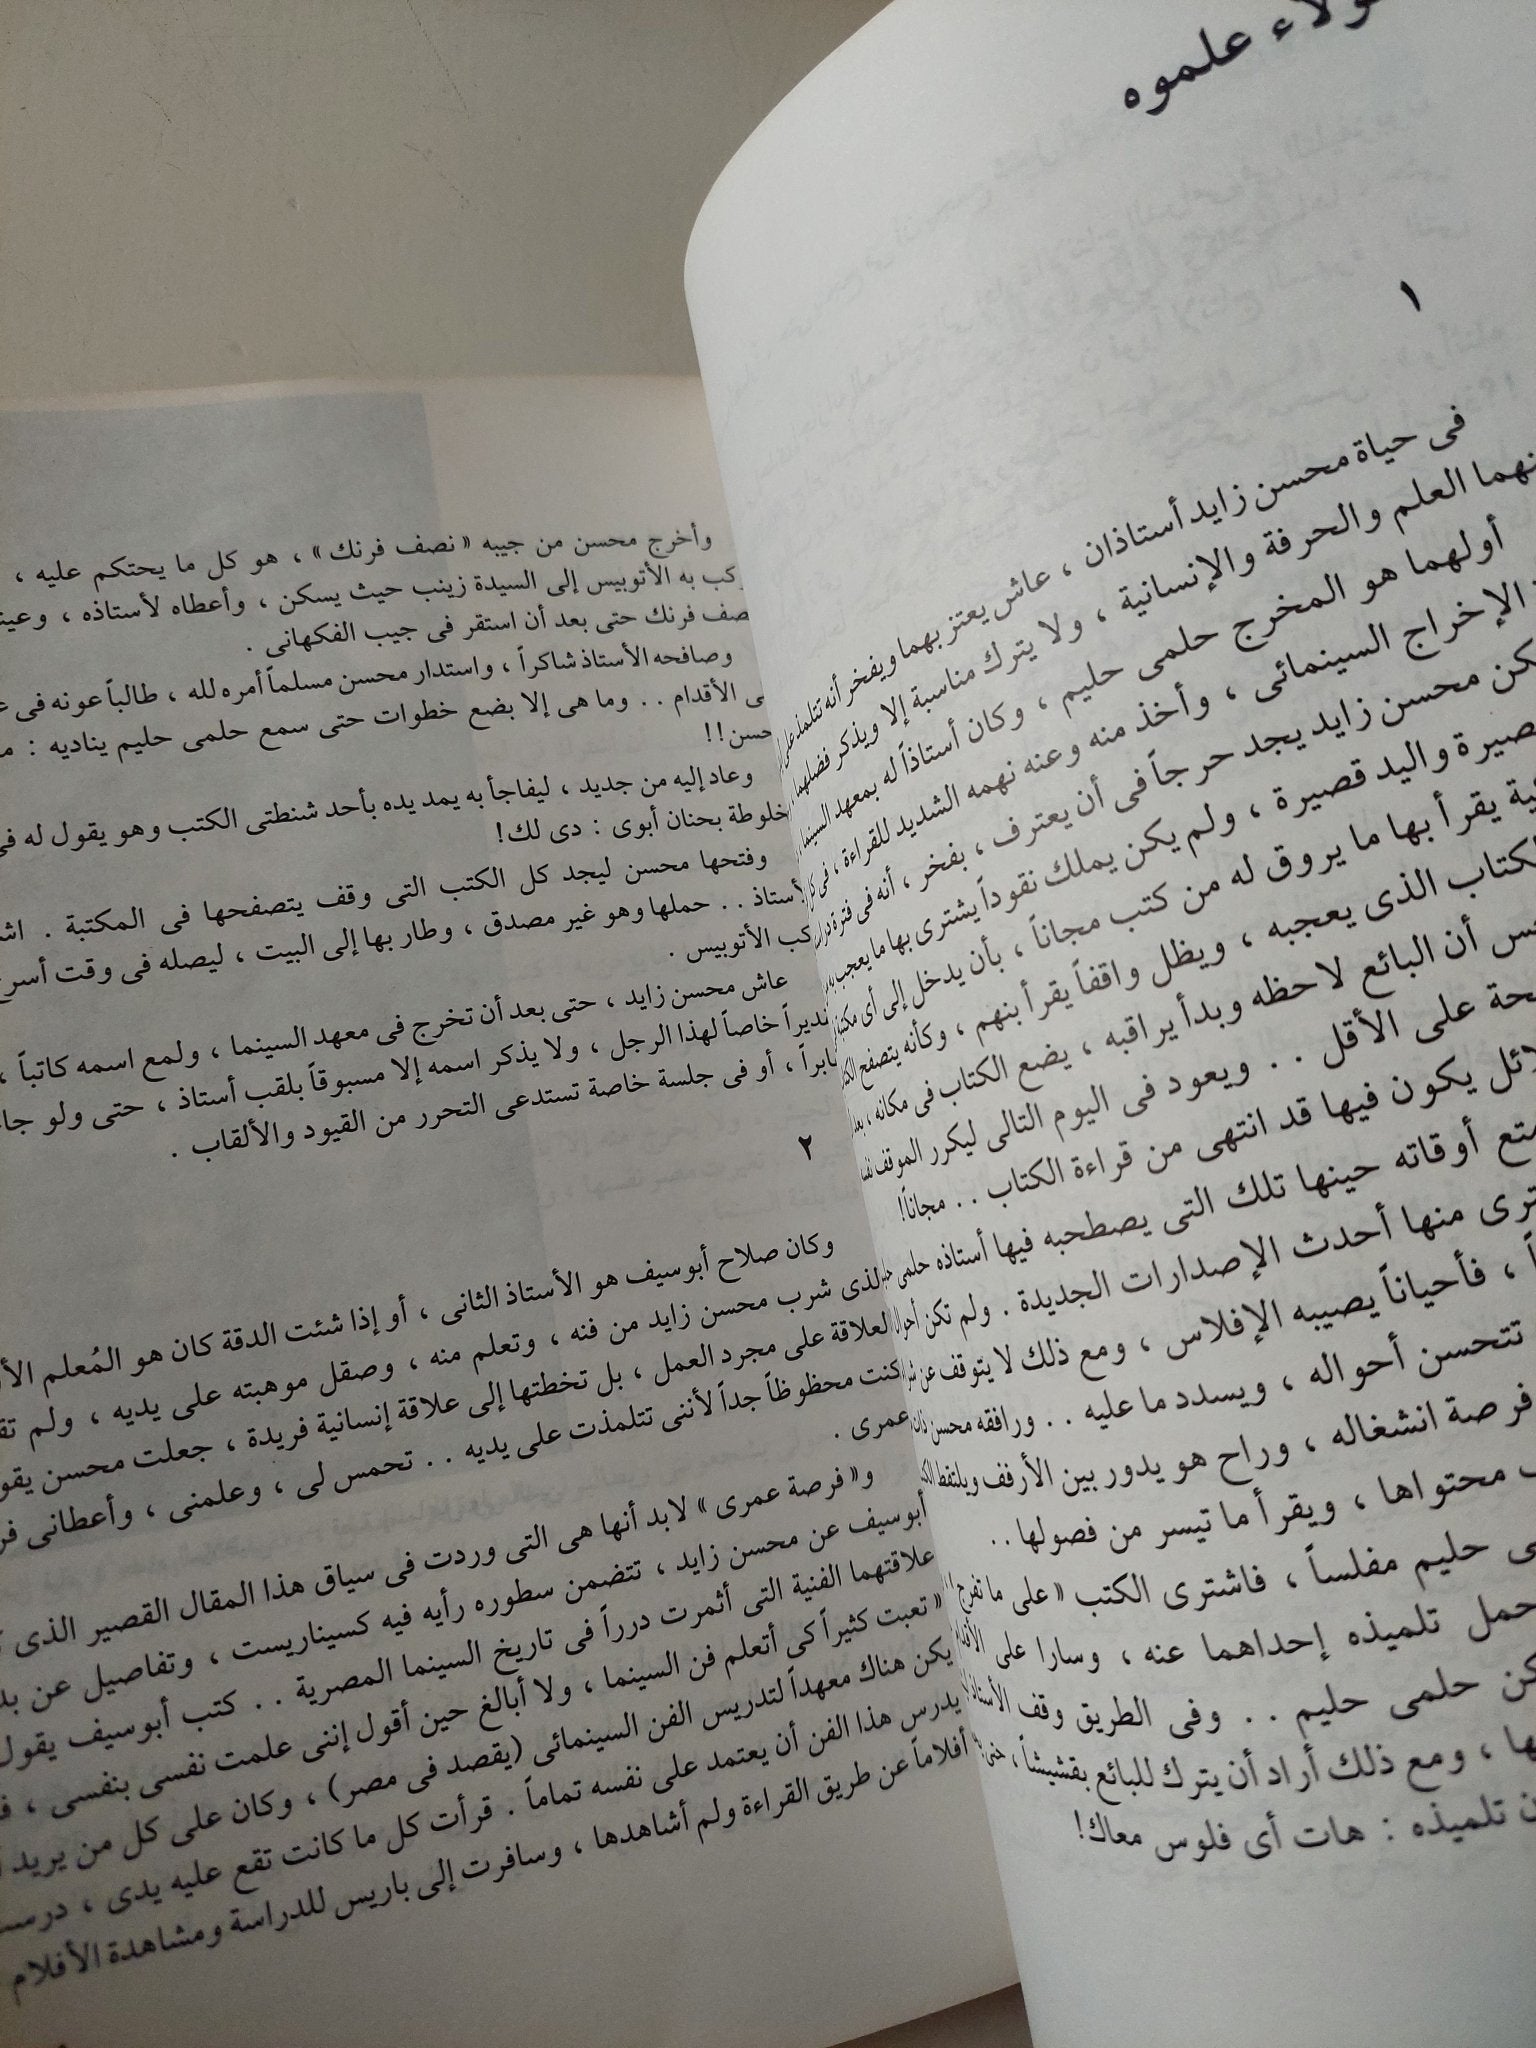 علموه
١
فى حياة محسن زايد أستاذان ، عاش يعتز بهما ويفخر أنه تتلمذ على
العلم والحرفة والإنسانية ، ولا يترك مناسبة إلا ويذكر فضلهما
أولهما هو المخرج حلمى حليم ، وكان أستاذاً له بمعهد السينما
الإخراج السينمائى ، وأخذ منه وعنه نهمه الشديد للقراءة ، فى
محسن زايد يجد حرجاً فى أن يعترف ، بفخر ، أنه فى فترة
واليد قصيرة ، ولم يكن يملك نقوداً يشترى بها ما يعجبه
يقرأ بها ما يروق له من كتب مجاناً ، بأن يدخل إلى أى مكتبة
الذى يعجبه ، ويظل واقفاً يقرأ بنهم ، وكأنه يتصفح
أن البائع لاحظه وبدأ يراقبه ، يضع الكتاب فى مكانه ، بعد
على الأقل . . ويعود فى اليوم التالى ليكرر الموقف
يكون فيها قد انتهى من قراءة الكتاب . . مجاناً!
أوقاته حينها تلك التى يصطحبه فيها أستاذه حلمى
منها أحدث الإصدارات الجديدة . ولم تكن
، فأحياناً يصيبه الإفلاس ، ومع ذلك لا يتوقف عن
تتحسن أحواله ، ويسدد ما عليه . . ورافقه محسن
فرصة انشغاله ، وراح هو يدور بين الأرفف ويلتقط
محتواها ، ويقرأ ما تيسر من فصولها . .
حليم مفلساً ، فاشترى الكتب « على ما تفرج »
تلميذه إحداهما عنه ، وسارا على
حلمى حليم . . وفى الطريق وقف الأستاذ
، ومع ذلك أراد أن يترك للبائع بقشيشاً ، حتى
تلميذه : هات أى فلوس معاك!
وأخرج محسن من جيبه « نصف فرنك » ، هو كل ما يحتكم عليه ،
به الأتوبيس إلى السيدة زينب حيث يسكن ، وأعطاه لأستاذه ،
فرنك حتى بعد أن استقر فى جيب الفكهانى .
وصافحه الأستاذ شاكراً ، واستدار محسن مسلماً أمره لله ، طالباً عونه فى
الأقدام . . وما هى إلا بضع خطوات حتى سمع حلمى حليم يناديه :
وعاد إليه من جديد ، ليفاجأ به يمد يده بأحد شنطتى الكتب وهو يقول له
بحنان أبوى : دى لك!
وفتحها محسن ليجد كل الكتب التى وقف يتصفحها فى المكتبة .
. . حملها وهو غير مصدق ، وطار بها إلى البيت ، ليصله فى وقت
الأتوبيس .
عاش محسن زايد ، حتى بعد أن تخرج فى معهد السينما ، ولمع اسمه كاتباً ،
خاصاً لهذا الرجل ، ولا يذكر اسمه إلا مسبوقاً بلقب أستاذ ، حتى ولو
، أو فى جلسة خاصة تستدعى التحرر من القيود والألقاب .
٢
وكان صلاح أبوسيف هو الأستاذ الثانى ، أو إذا شئت الدقة كان هو المُعلم
الذى شرب محسن زايد من فنه ، وتعلم منه ، وصقل موهبته على يديه ، ولم
العلاقة على مجرد العمل ، بل تخطتها إلى علاقة إنسانية فريدة ، جعلت محسن
كنت محظوظاً جداً لأننى تتلمذت على يديه . . تحمس لى ، وعلمنى ، وأعطانى
عمرى .
و« فرصة عمرى » لابد أنها هى التى وردت فى سياق هذا المقال القصير الذى
أبوسيف عن محسن زايد ، تتضمن سطوره رأيه فيه كسيناريست ، وتفاصيل عن
علاقتهما الفنية التى أثمرت درراً فى تاريخ السينما المصرية . . كتب أبوسيف يقول
« تعبت كثيراً كى أتعلم فن السينما ، ولا أبالغ حين أقول إننى علمت نفسى بنفسى ،
يكن هناك معهداً لتدريس الفن السينمائى (يقصد فى مصر) ، وكان على كل من يريد
يدرس هذا الفن أن يعتمد على نفسه تماماً . قرأت كل ما كانت تقع عليه يدى ،
أفلاماً عن طريق القراءة ولم أشاهدها ، وسافرت إلى باريس للدراسة ومشاهدة الأفلام